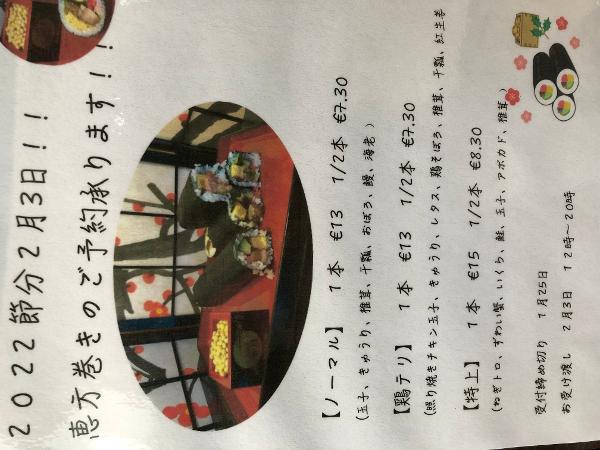 2022節分2月3日！！
恵方巻きのご予約承ります！！
【ノーマル】 1本 €13 1/2本 €7.30
（玉子、きゅうり、椎茸、干瓢、おぼろ、鰻、海老）
【鶏テリ】 1本 €13 1/2本 €7.30
（照り焼きチキン玉子、きゅうり、レタス、鶏そぼろ、椎茸、干瓢、紅生姜
【特上】 1本 €15 1/2本 €8.30
（ねぎトロ、ずわい蟹、いくら、鮭、玉子、アボカド、椎茸）
受付締め切り 1月25日
お受け渡し 2月3日 12時～20時